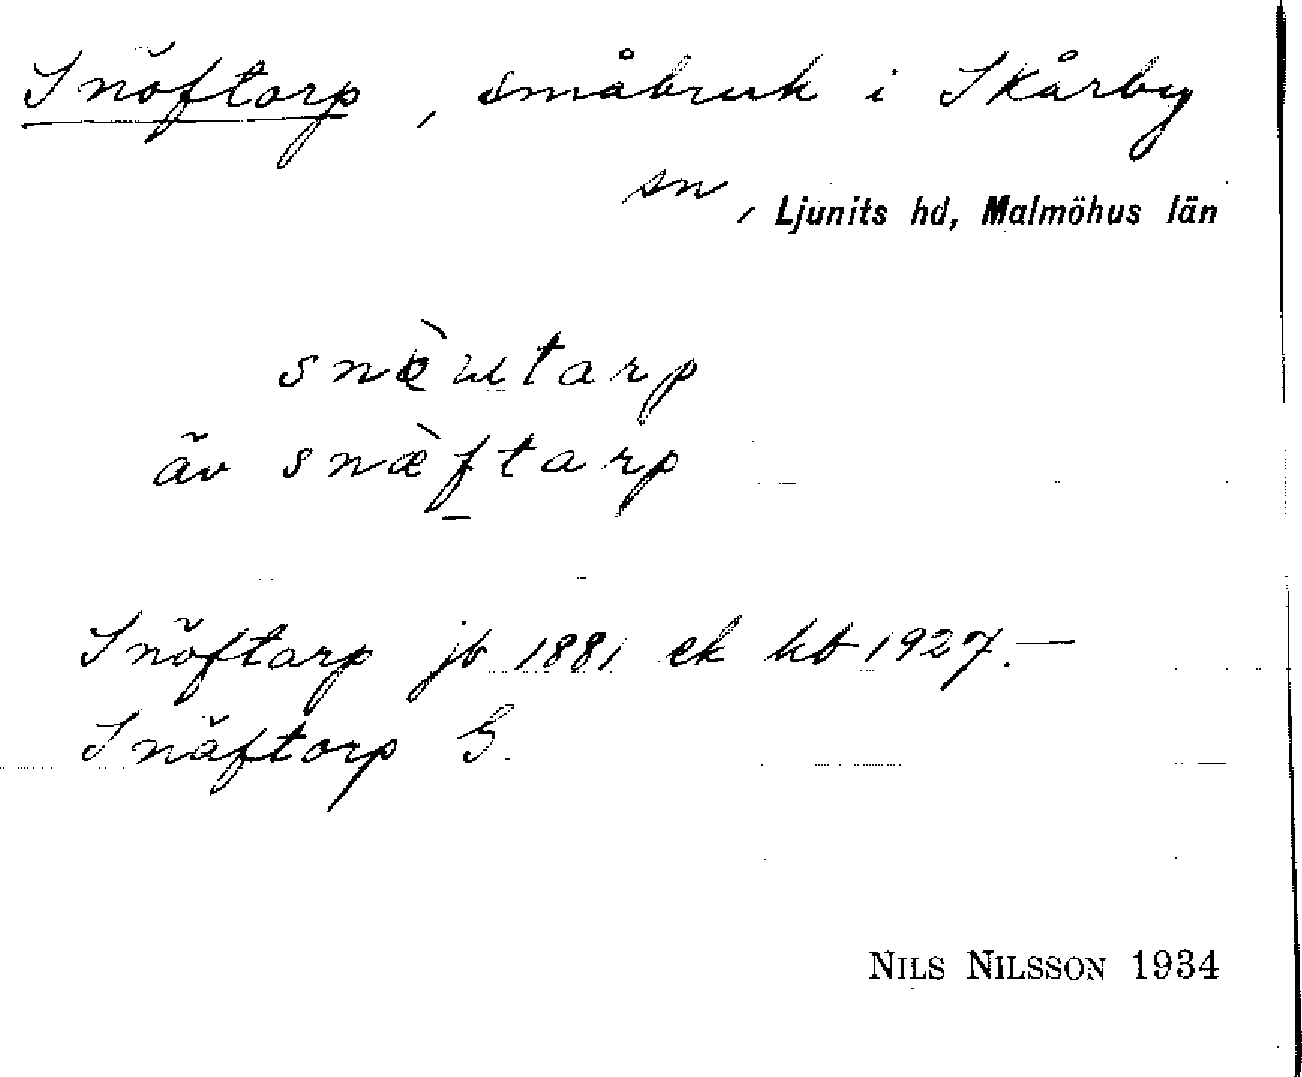 Snöftorp, småbruk i Skårby
sn, Ljunits hd, Malmöhus län
snæ̀utarp
äv snæ̀f̲tarp
Snöftarp jb 1881 ek kb 1927.—
Snäftorp G.
NILS NILSSON 1934